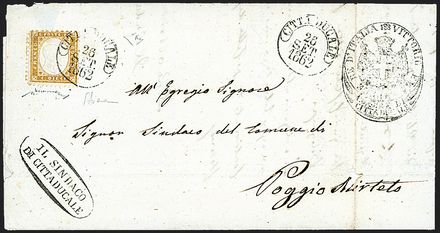 CITTADUCALE
26
SET
1862
CITTADUCALE
26
SET
1862
RE D'ITALIA VITTORIO
All' Egregio Signore
Signor Sindaco del Comune di
Poggio Mirteto
IL SINDACO
DI CITTADUCALE